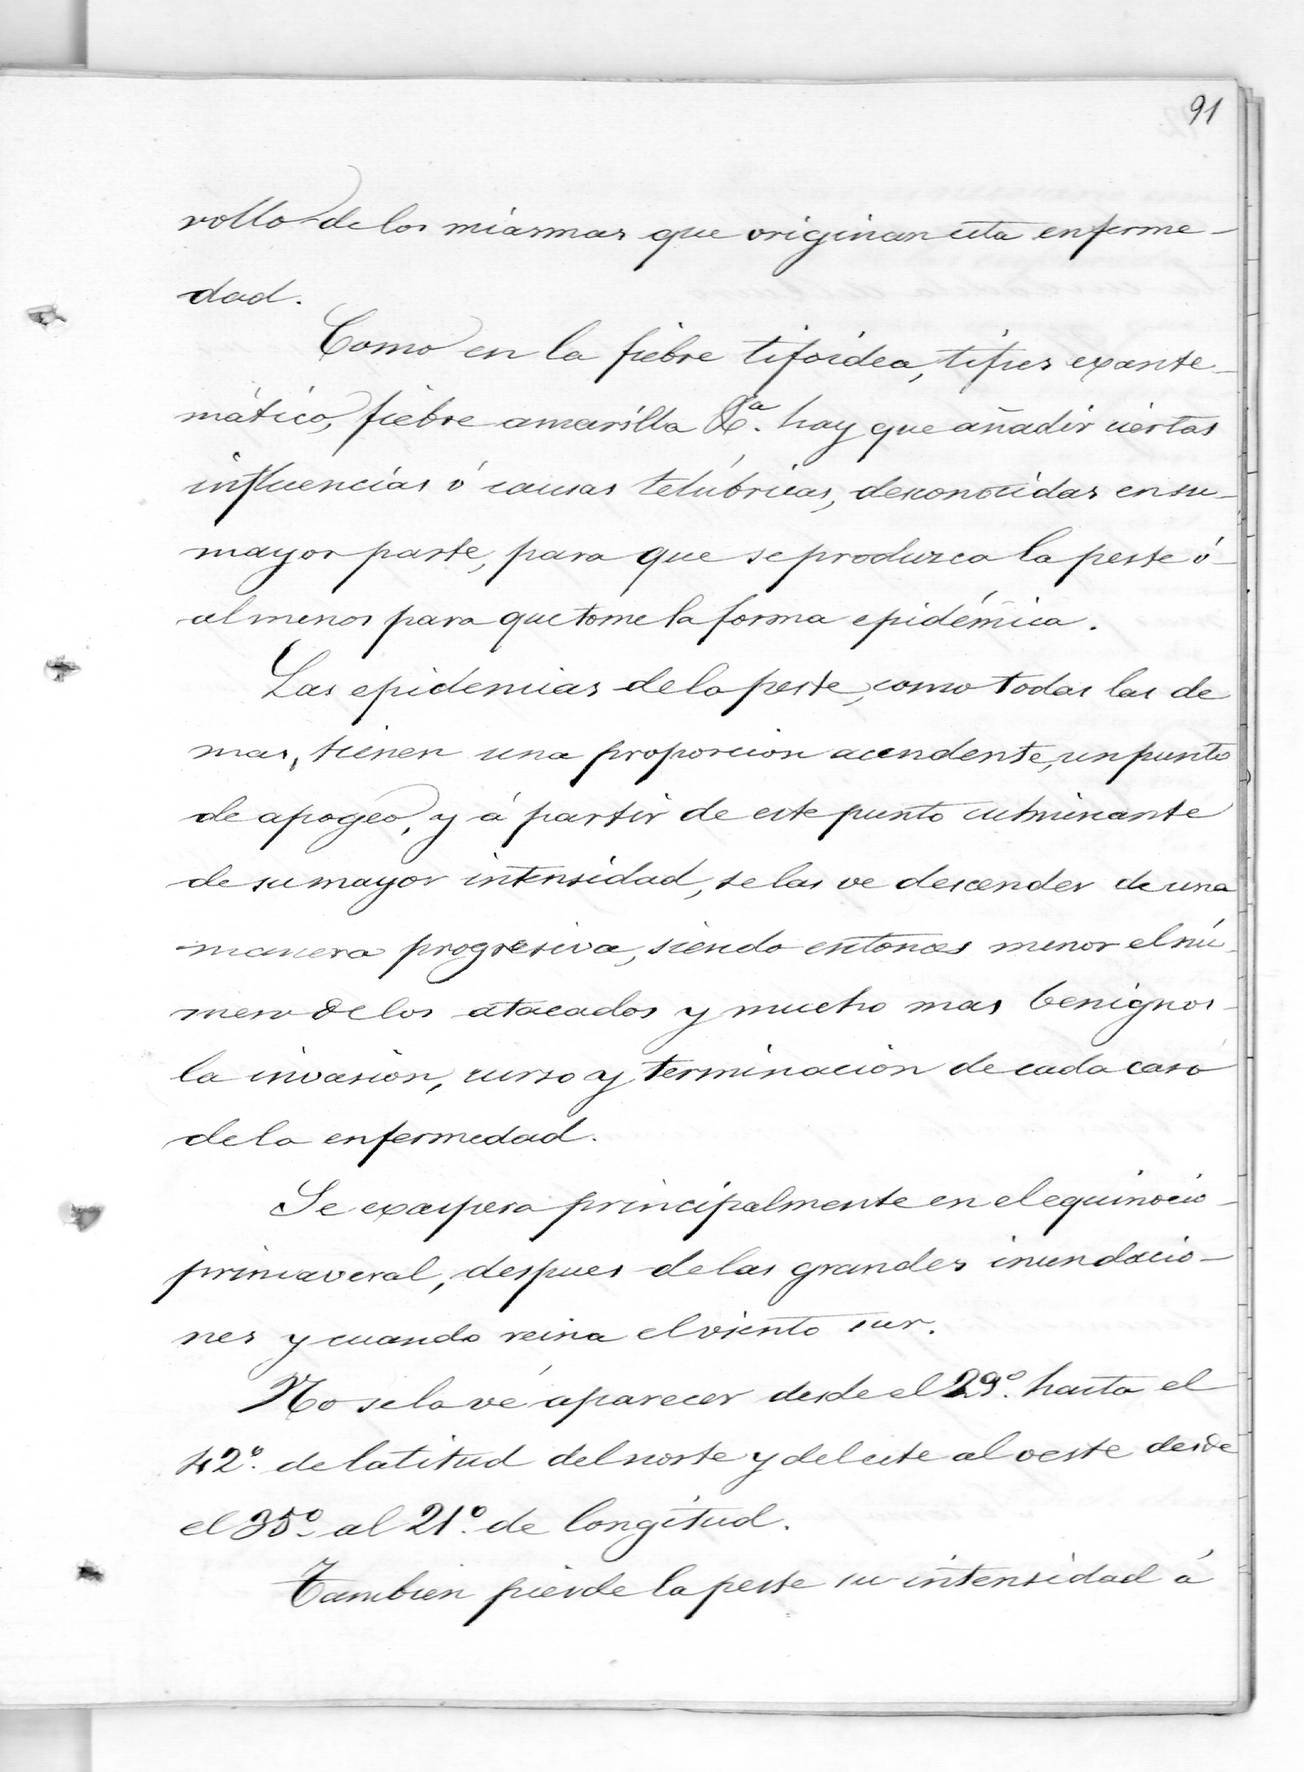 91
rollo de los miasmas que originan esta enferme-
dad.
Como en la fiebre tifoidea, tifus exante-
mático, fiebre amarilla &ª. hay que añadir ciertas
influencias ó causas telúbricas, desconocidas en su
mayor parte, para que se produzca la peste ó
al menos para que tome la forma epidémica.
Las epidemias de la peste, como todas las de
mas, tienen una proporcion acendente, un punto
de apogeo, y á partir de este punto culminante
de su mayor intensidad, se las ve descender de una
manera progresiva, siendo entonces menor el nú-
mero de los atacados y mucho mas benignos
la invasion, curso y terminacion de cada caso
de la enfermedad.
Se exaspera principalmente en el equinocio
primaveral, despues de las grandes inundacio-
nes y cuando reina el viento sur.
No se la vé aparecer desde el 29º. hasta el
42º. de latitud del norte y del este al oeste desde
el 35º. al 21º. de longitud.
Tambien pierde la peste su intensidad á